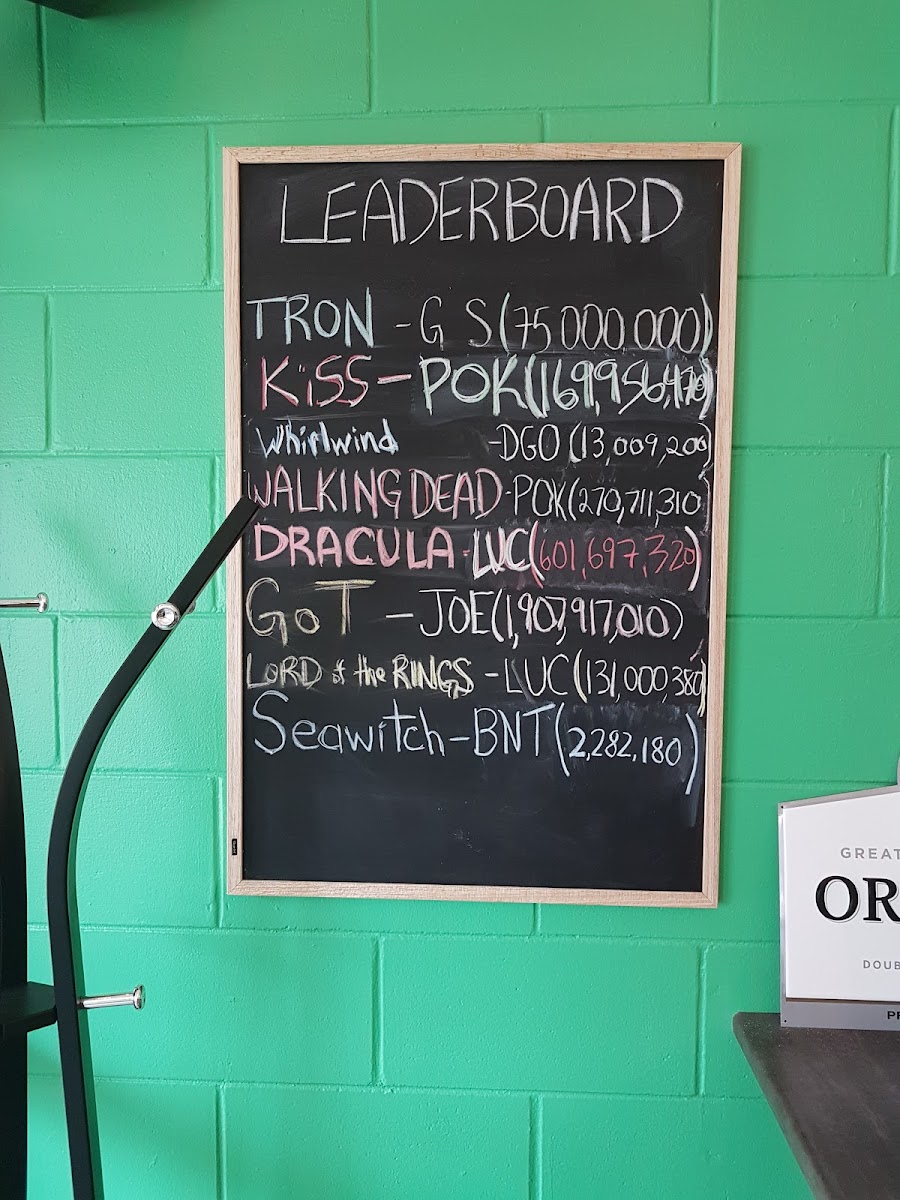 LEADERBOARD
TRON - G S (75 000,000)
KiSS - POK (169,956,470)
Whirlwind - DGO (13,009,200)
WALKING DEAD - POK (270,711,310
DRACULA - LUC (601,697,320)
GoT - JOE (1,907,917,010)
LORD of the RINGS - LUC (131,000,380)
Seawitch - BNT (2,282,180)
GREAT
OR
DOUB
PR